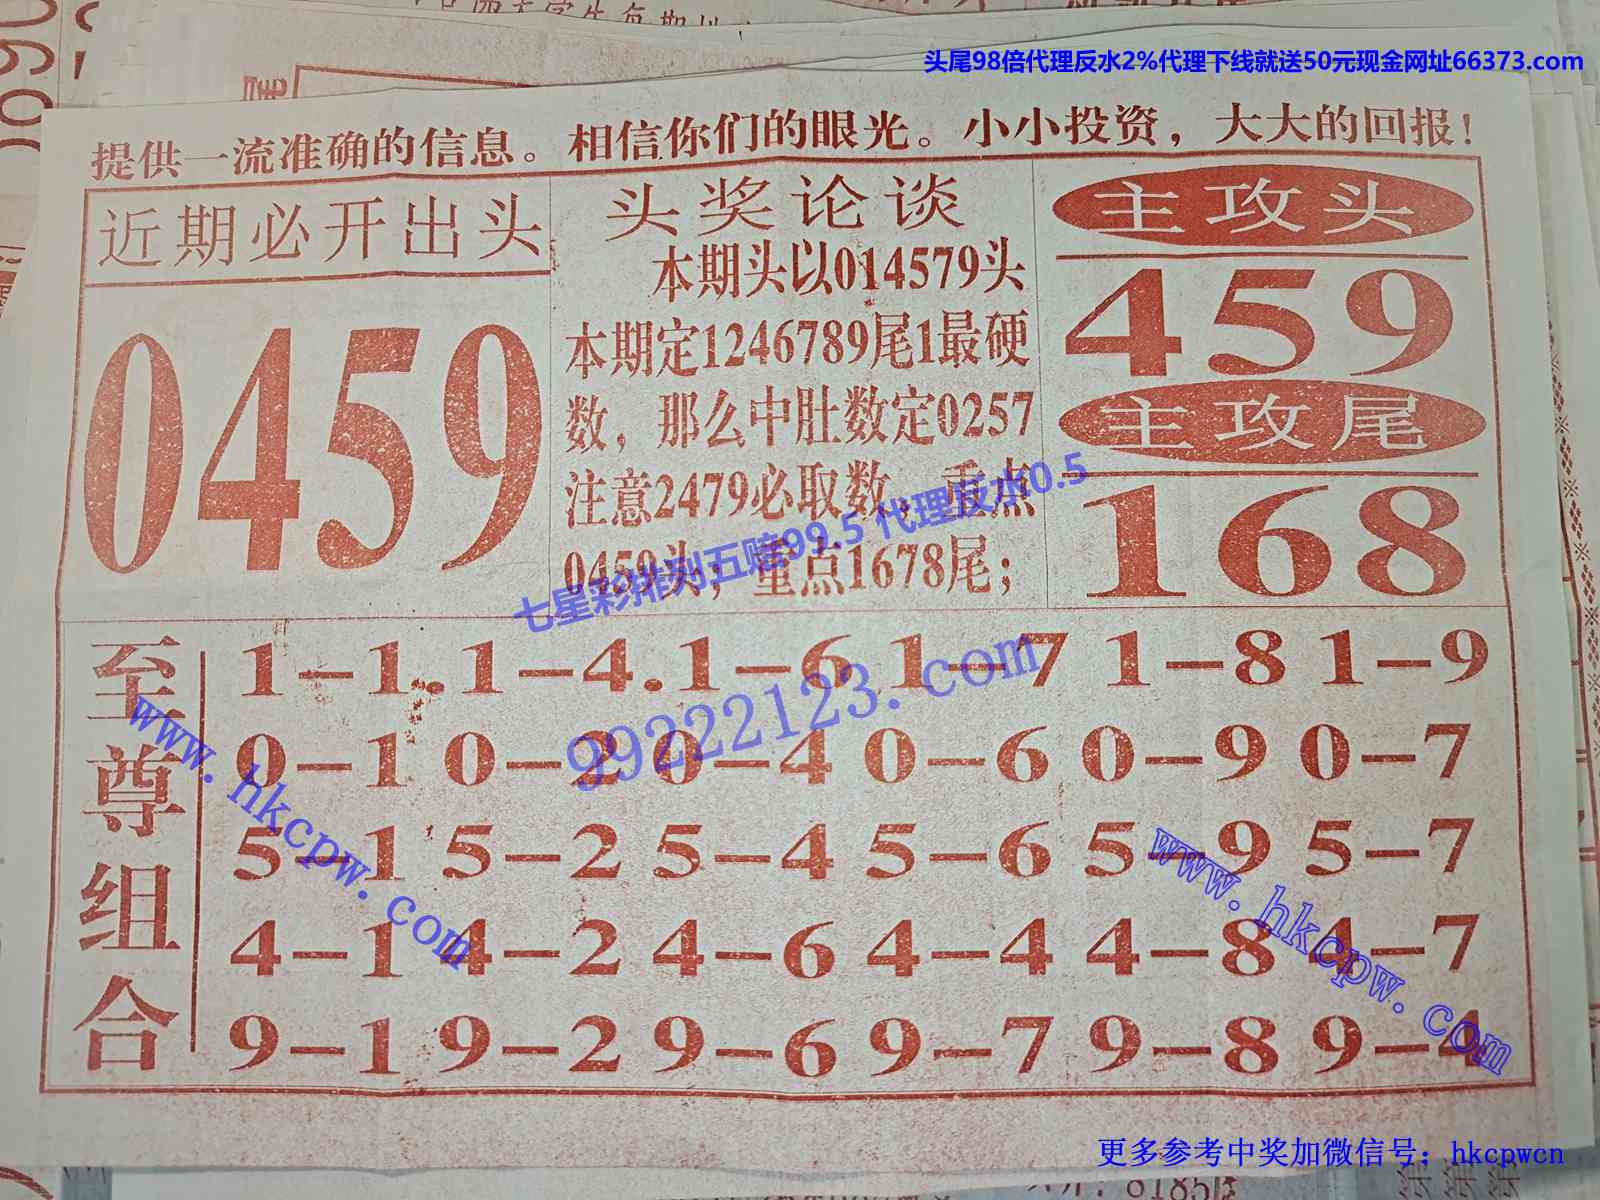 头尾98倍代理反水2%代理下线就送50元现金网址66373.com
提供一流准确的信息。相信你们的眼光。小小投资，大大的回报！
近期必开出头
0459
头奖论谈
本期头以014579头
本期定1246789尾1最硬
数，那么中肚数定0257
注意2479必取数，重点
0459头；重点1678尾；
主攻头
459
主攻尾
168
至尊组合
1-1.1-4.1-6 1-7 1-8 1-9
0-1 0-2 0-4 0-6 0-9 0-7
5-1 5-2 5-4 5-6 5-9 5-7
4-1 4-2 4-6 4-4 4-8 4-7
9-1 9-2 9-6 9-7 9-8 9-4
七星彩排列五赔99.5 代理反水0.5
99222123.com
www.hkcpw.com
www.hkcpw.com
更多参考中奖加微信号：hkcpwcn